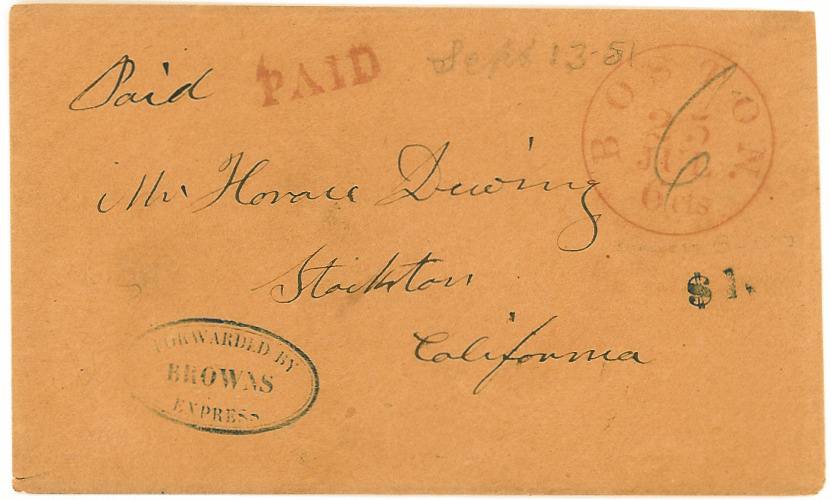 Paid
PAID
Sept 13-51
BOSTON
25
JUL
6 cts
6
Mr Horace Dewing
Stockton
California
$1.
FORWARDED BY
BROWNS
EXPRESS